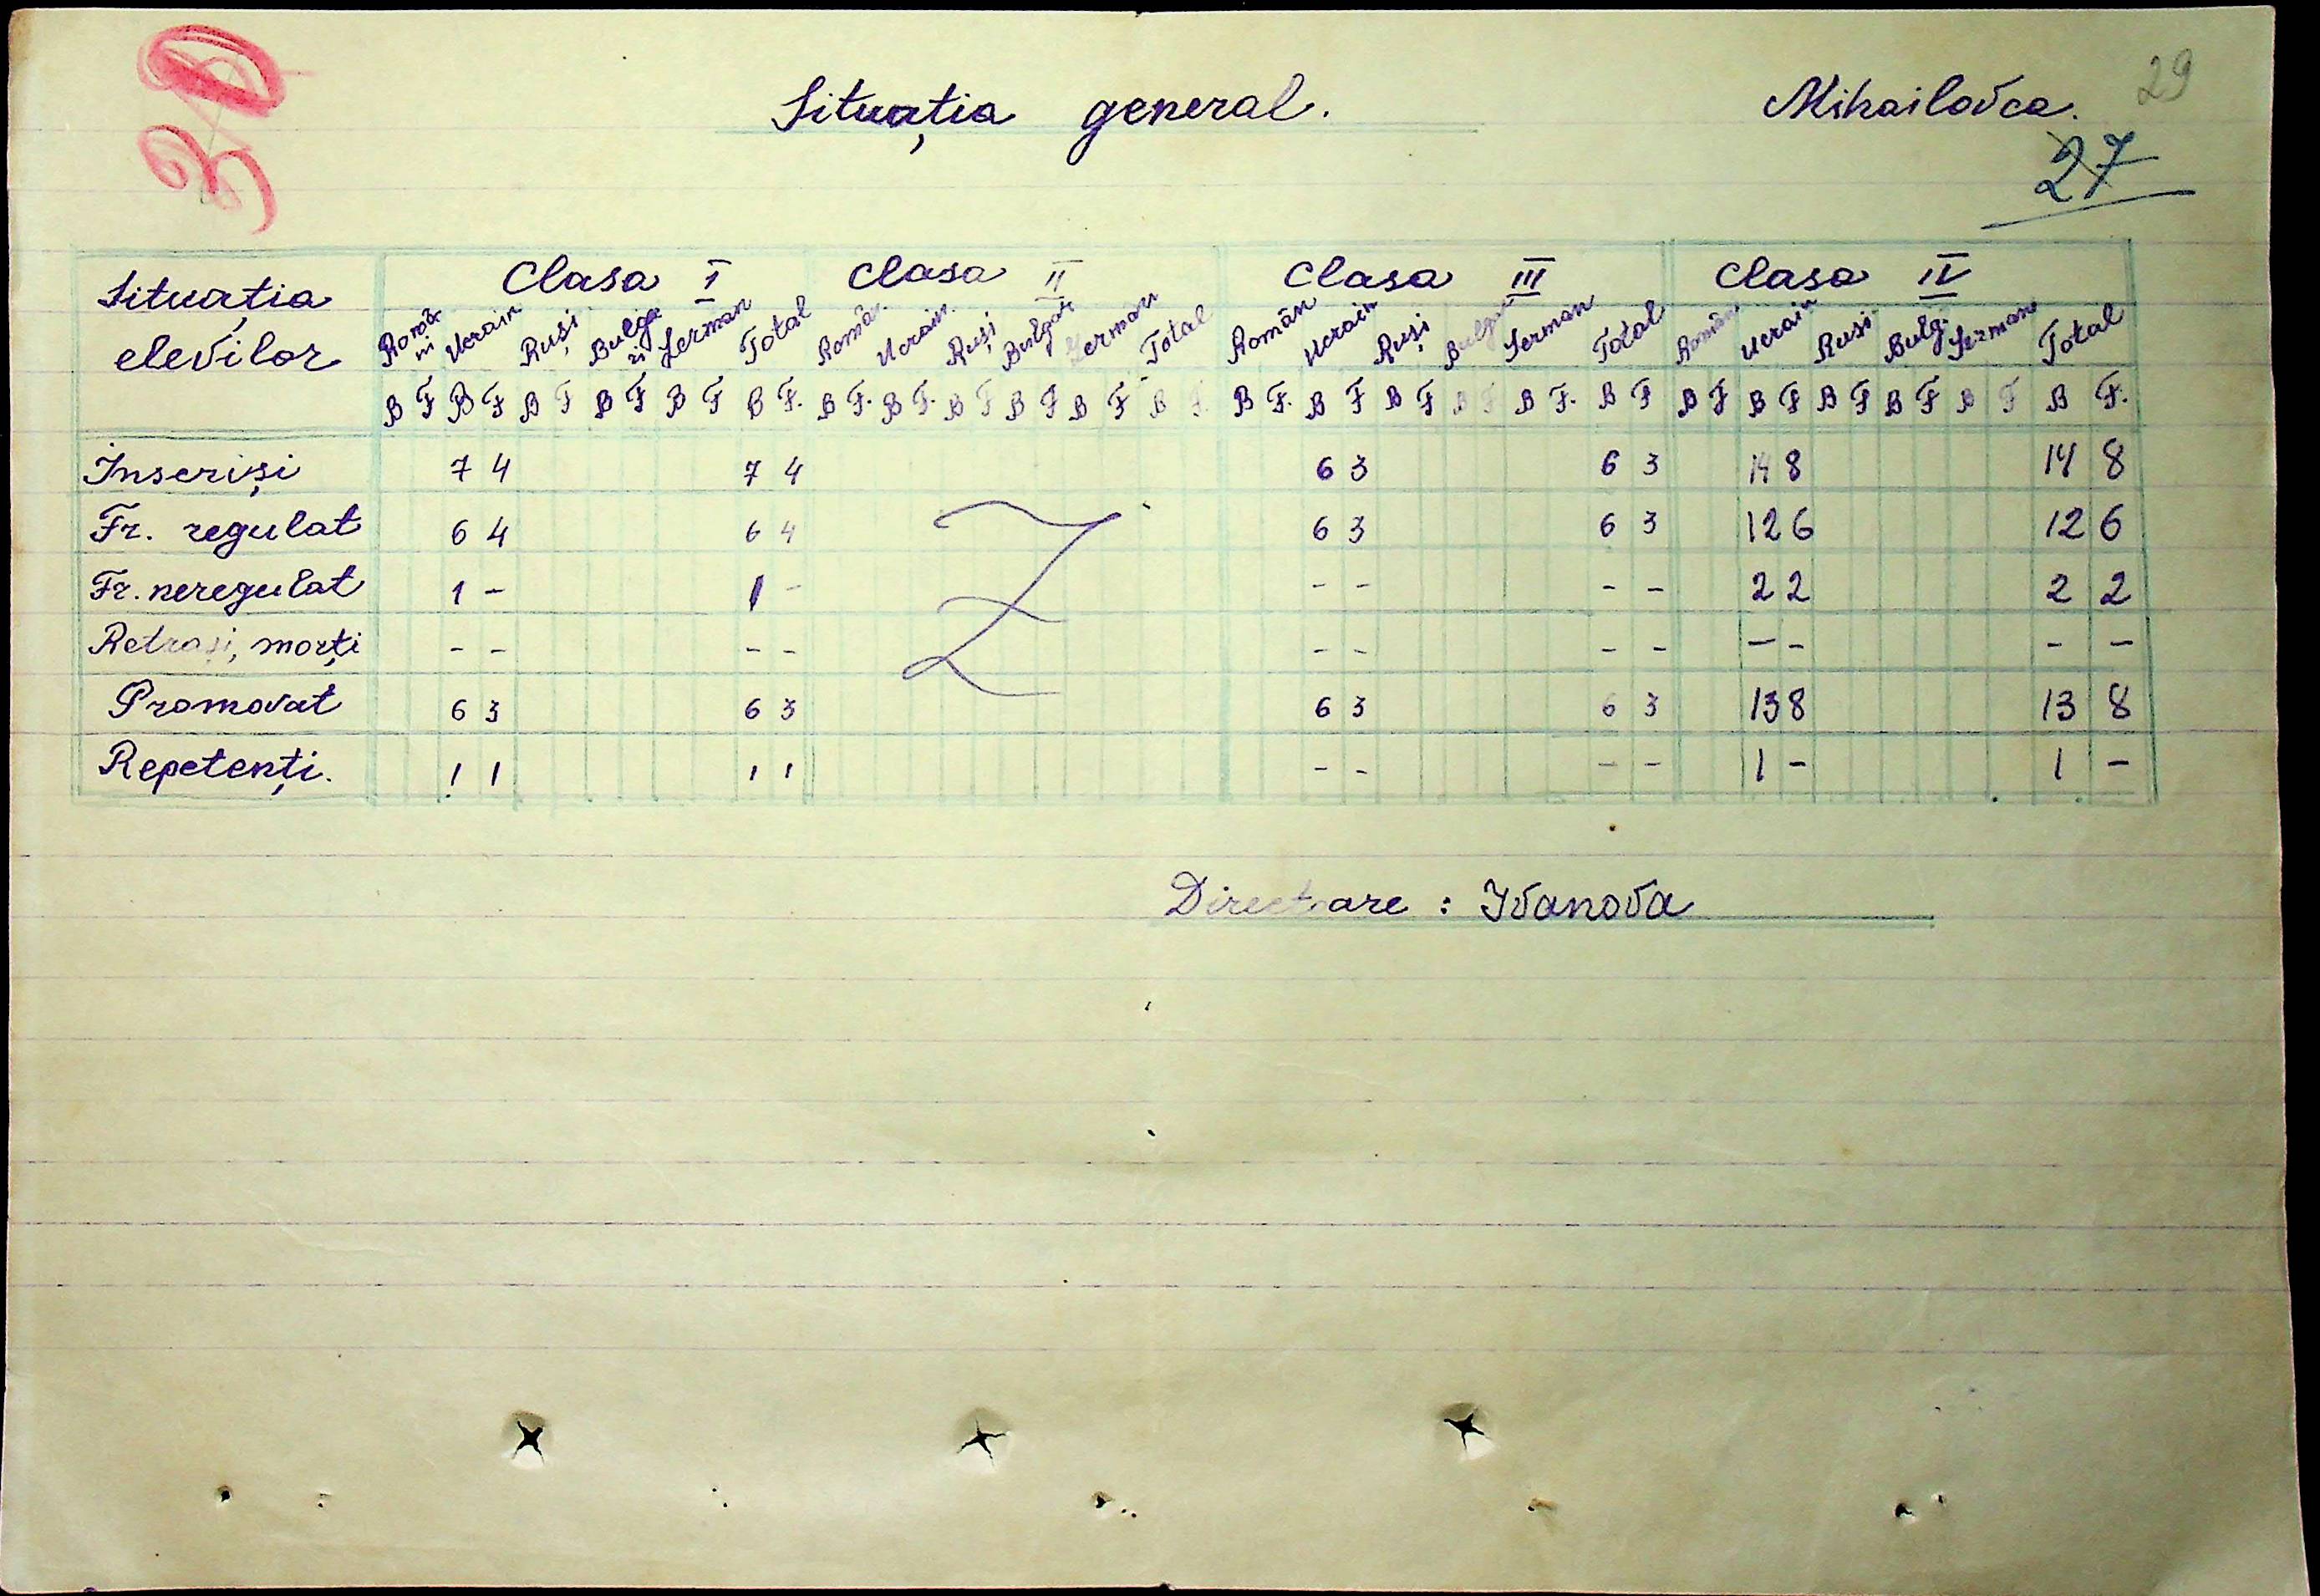 30
Situația general.
Mihailovca.
29
27
Situația elevilor
Clasa I
Clasa II
Clasa III
Clasa IV
Români Ucrain Ruși Bulgari German Total Român Ucrain. Ruși Bulgar German Total Român Ucrain Ruși Bulgar German Total Român Ucrain Ruși Bulg. German Total
B F B F B F B F B F B F. B F. B F. B F B F B F B F. B F. B F B F B F B F. B F B F B F B F B F B F B F.
Inseriși 7 4 7 4 6 3 6 3 14 8 14 8
Fr. regulat 6 4 6 4 6 3 6 3 12 6 12 6
Fr. neregulat 1 - 1 - - - - - 2 2 2 2
Retrași, morți - - - - - - - - - - - -
Promovat 6 3 6 3 6 3 6 3 13 8 13 8
Repetenți. 1 1 1 1 - - - - 1 - 1 -
Z
Directoare : Ivanova